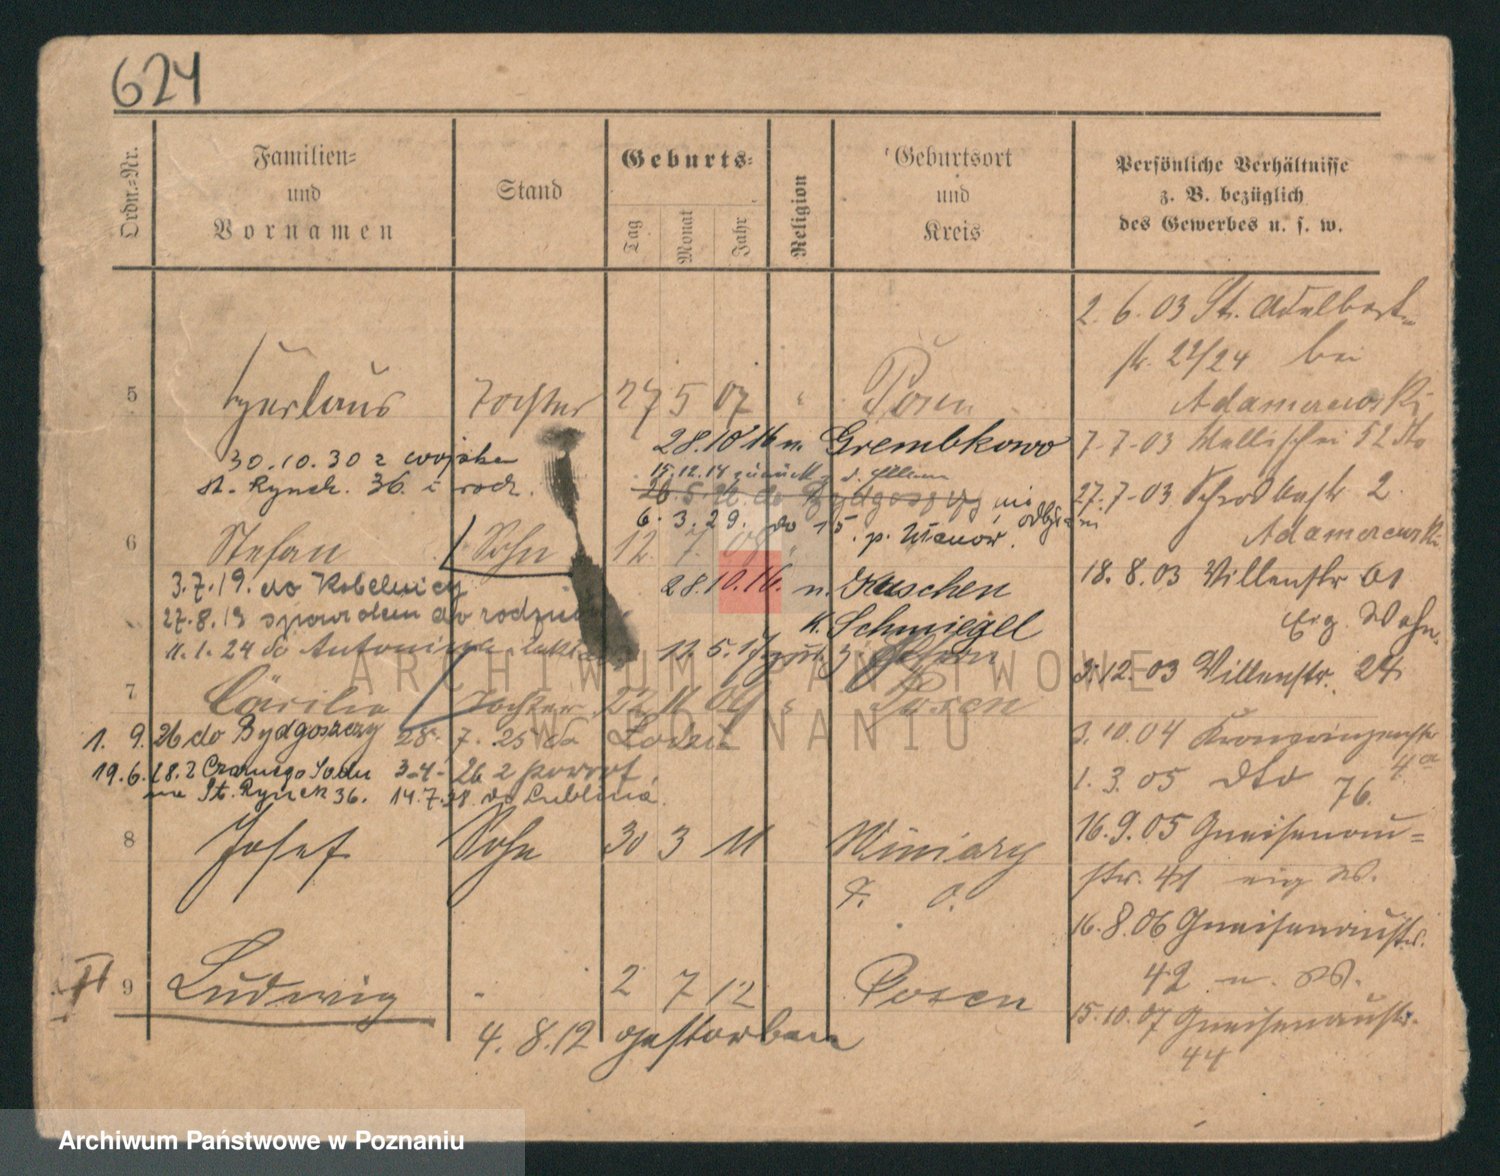 624
Ordn.=Nr.
Familien= und Vornamen
Stand
Geburts=
Tag
Monat
Jahr
Religion
Geburtsort und Kreis
Persönliche Verhältnisse z. B. bezüglich des Gewerbes u. s. w.
2. 6. 03 St. Adelbert=
str. 22/24 bei
5 Tochter 27 5 07 " Posen
Adamczewski
28.10 16 n. Grembkowo
7.7.03 Wallischei 52 dto
30.10.30 z wojska
15.12.14 zurück
St. Rynek. 36. i rodz.
26.5. do Bydgoszczy nie
27.7.03 2.
6. 3. 29. do 15. p. Ułanów. odbył
Adamczewski
6 Stefan Sohn 12. 7. 08 "
18. 8. 03 Villenstr 01
3.7.19. do Kobelnicy
28.10.16. n. Kuschen
27.8.19 do rodziców
K. Schmiegel
Erg. Wohn.
11.1.24 do Antoninka
12. 5. 17 zur. v.
3.12.03 Villenstr. 24
7 Cäcilie Tochter 22 11 09 " Posen
1. 9. 26 do Bydgoszczy 28. 7. 25 do Łodzi
3.10.04 Kronprinzenstr 4a
19.6.28. z Czarnego Sadu 3-4-26 z powrot.
1. 3. 05 dto 76.
na St. Rynek 36. 14.7.28. do Lublina.
8 Josef Sohn 30 3 11 Winiary
16.9.05 Gneisenau=
P. O.
str. 41 eig W.
16.8.06 Gneisenaustr.
II 9 Ludwig - 2 7 12 Posen
42 n. W.
15.10.07 Gneisenaustr.
4. 8. 12 gestorben
44
ARCHIWUM PAŃSTWOWE
W POZNANIU
Archiwum Państwowe w Poznaniu